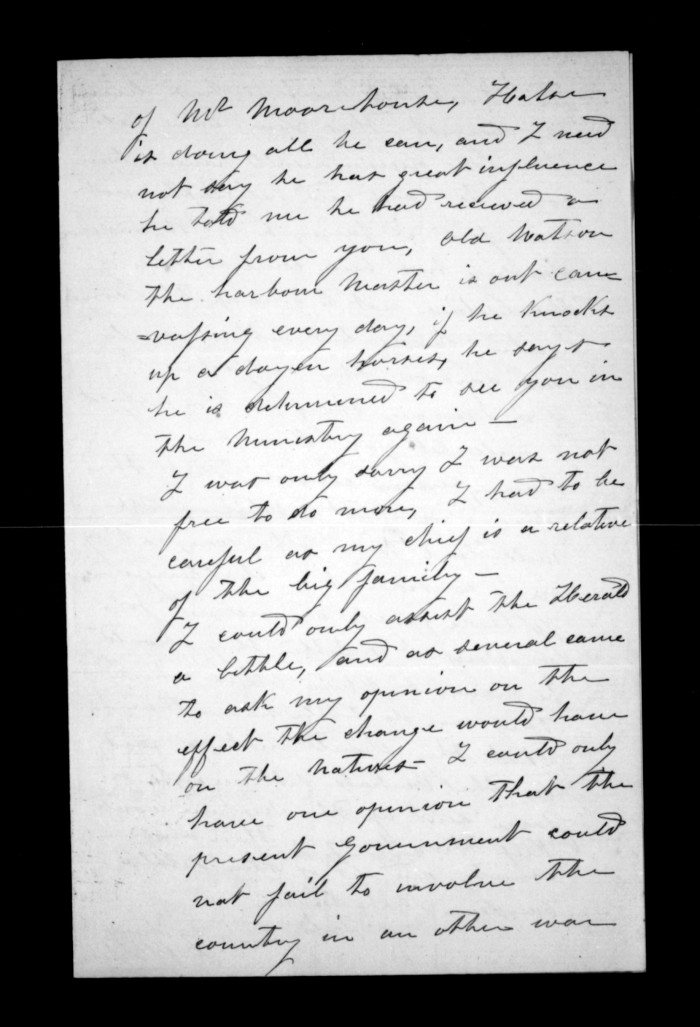 of Mr Moorehouse, Halse
is doing all he can, and I need
not say he has great influence
he told me he had received a
letter from you, old Watson
the harbour Master is out can=
=vassing every day, if he knocks
up a dozen horses, he says
he is determined to see you in
the Ministry again —
I was only sorry I was not
free to do more, I had to be
careful as my chief is a relative
of the big family —
I could only assist the Herald
a little, and as several came
to ask my opinion on the
effect the change would have
on the natives — I could only
have one opinion that the
present Government could
not fail to involve the
country in an other war